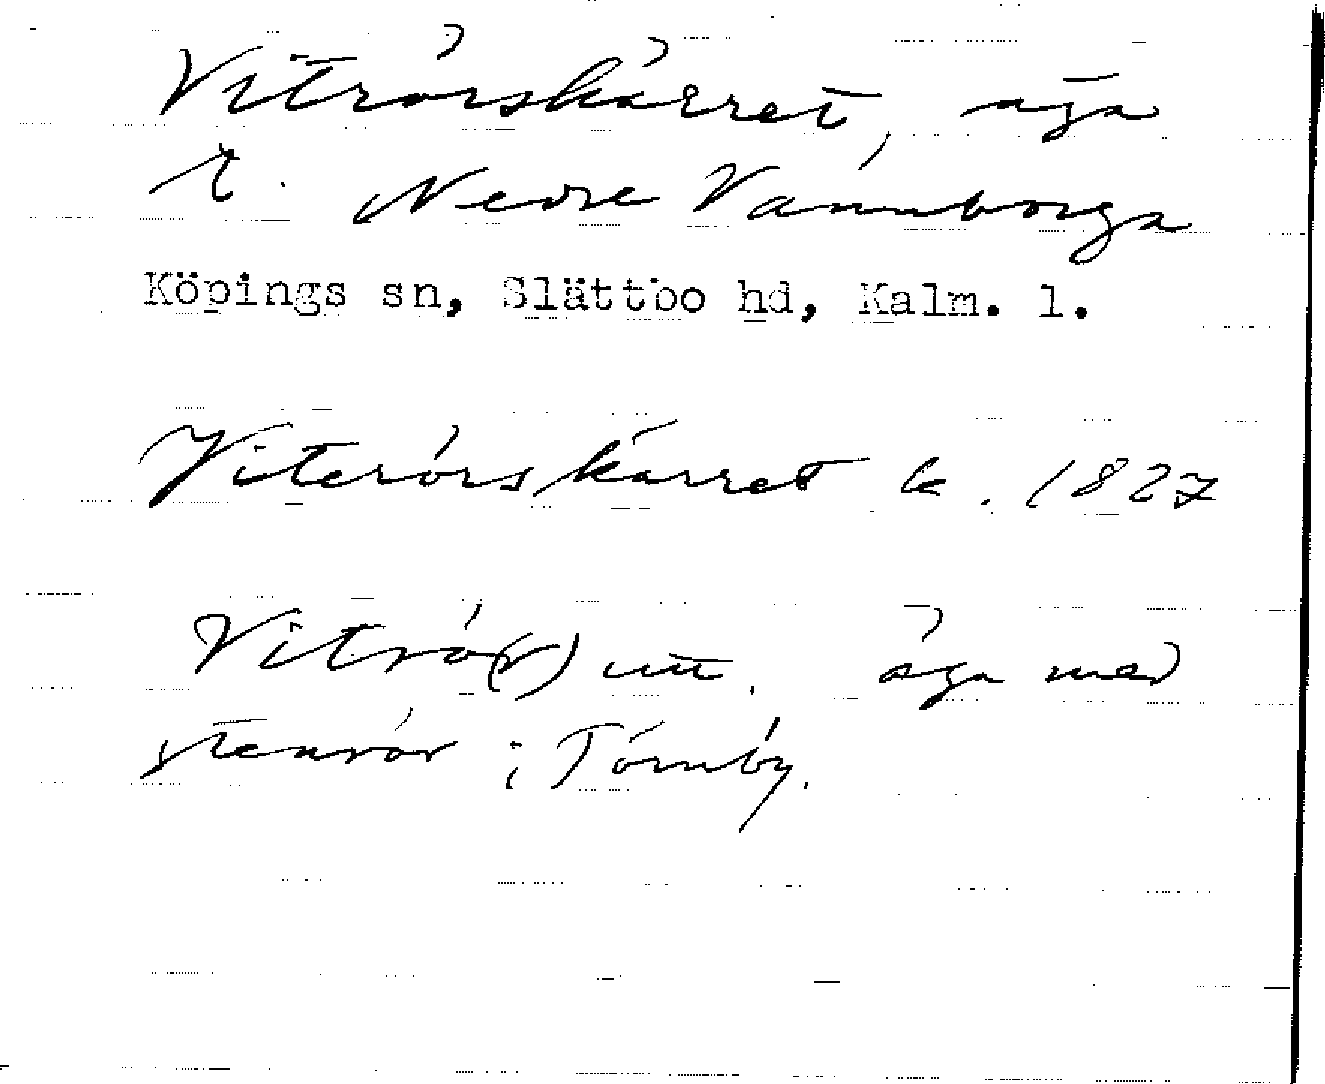 Vitrörskärret, äga
t. Nedre Vannborga
Köpings sn, Slättbo hd, Kalm. l.
Viterörskärret k. 1827
Vitrö(r) utt. äga med
stenrör i Törnby.